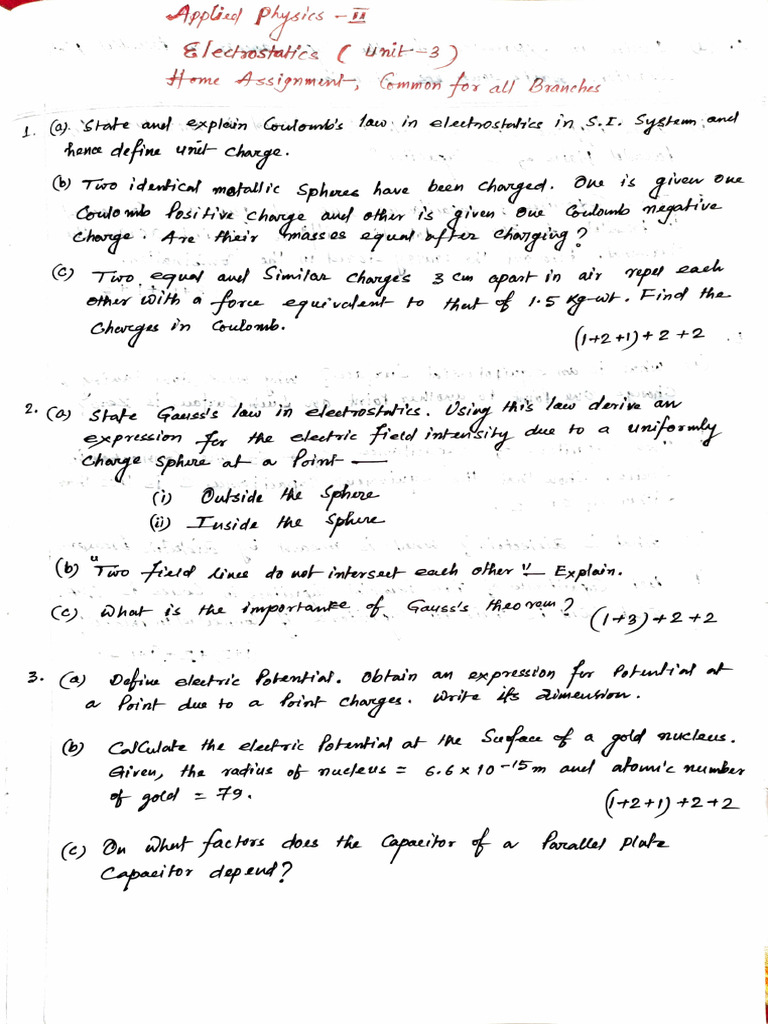 Applied Physics - II
Electrostatics ( Unit-3 )
Home Assignment, Common for all Branches
1. (a) State and explain Coulomb's law in electrostatics in S.I. System and
hence define unit charge.
(b) Two identical metallic spheres have been charged. One is given one
Coulomb Positive Charge and other is given one Coulomb negative
Charge. Are their masses equal after charging?
(c) Two equal and Similar Charges 3 cm apart in air repel each
other with a force equivalent to that of 1.5 Kg-wt. Find the
Charges in Coulomb.
(1+2+1)+2+2
2. (a) State Gauss's law in electrostatics. Using this law derive an
expression for the electric field intensity due to a uniformly
Charge sphere at a Point —
(i) Outside the Sphere
(ii) Inside the Sphere
(b) "Two field lines do not intersect each other" — Explain.
(c) What is the importance of Gauss's theorem?
(1+3)+2+2
3. (a) Define electric Potential. Obtain an expression for Potential at
a Point due to a Point Charges. Write its dimension.
(b) CalCulate the electric Potential at the Surface of a gold nucleus.
Given, the radius of nucleus = 6.6 x 10⁻¹⁵m and atomic number
of gold = 79.
(1+2+1)+2+2
(c) On what factors does the Capacitor of a Parallel Plate
Capacitor depend?